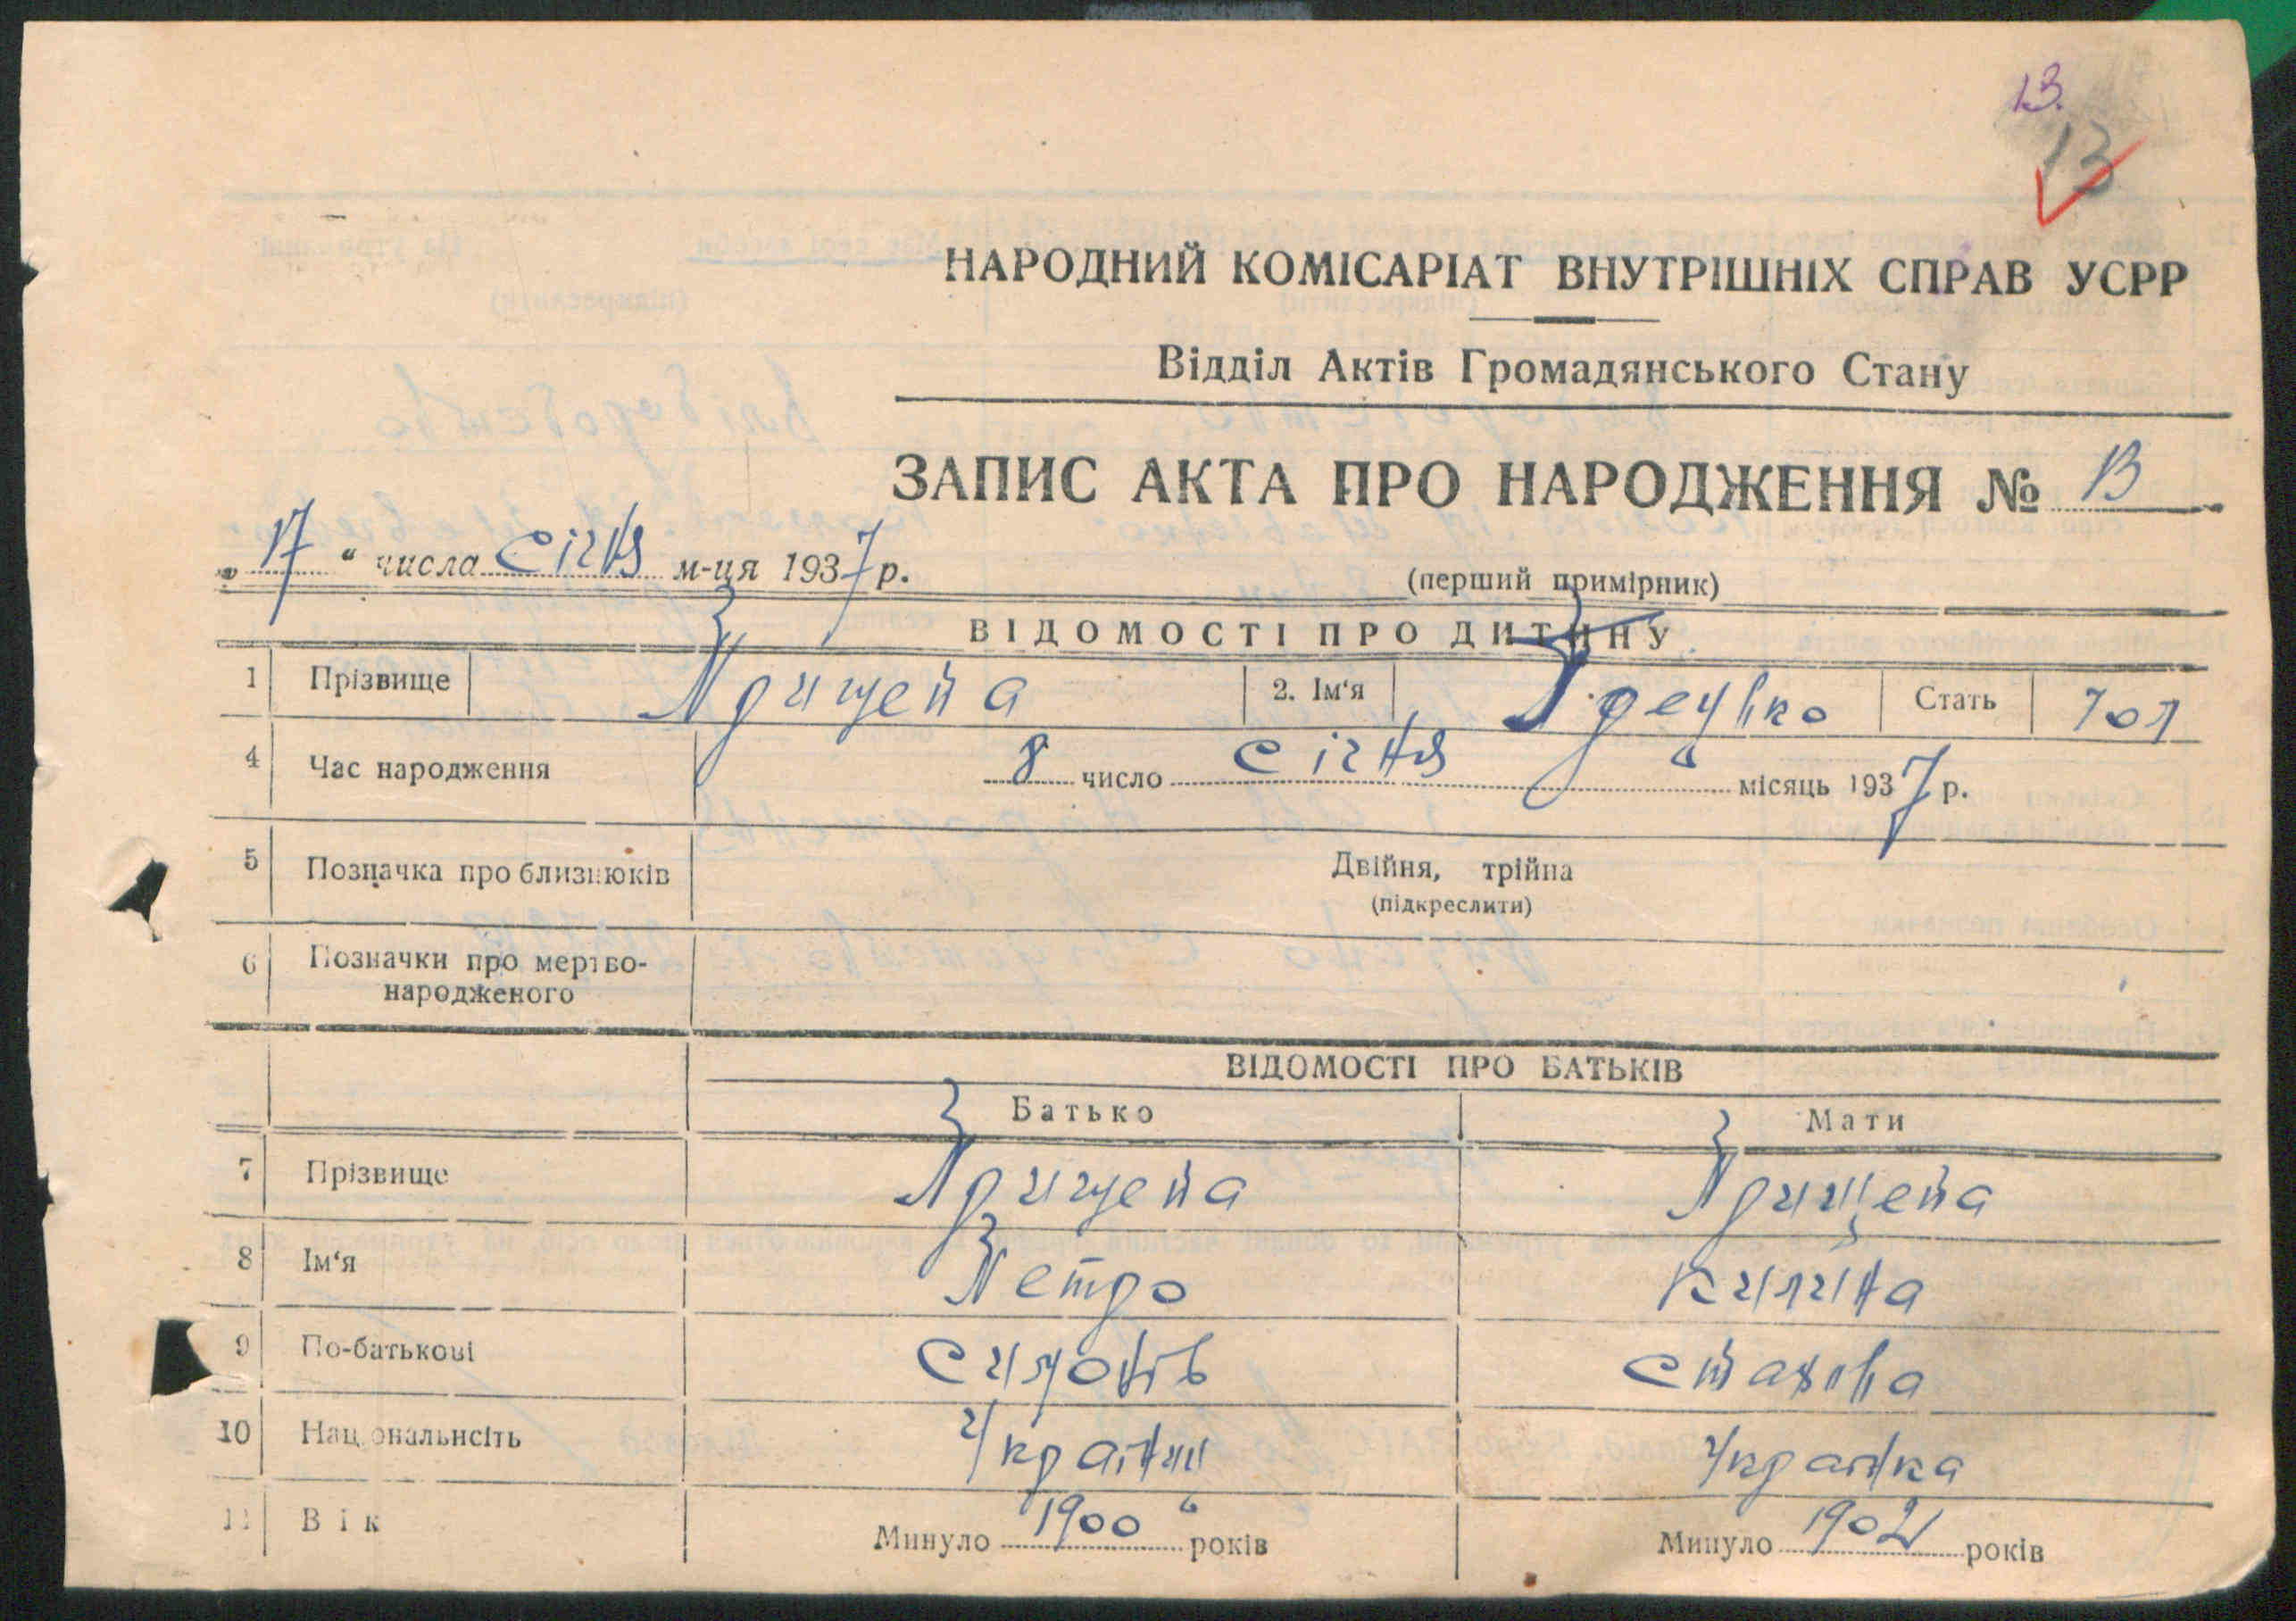 13.
13
НАРОДНИЙ КОМІСАРІАТ ВНУТРІШНІХ СПРАВ УСРР
Відділ Актів Громадянського Стану
ЗАПИС АКТА ПРО НАРОДЖЕННЯ № 13
„ 17 “ числа січня м-ця 1937 р.
(перший примірник)
ВІДОМОСТІ ПРО ДИТИНУ
1 Прізвище Прищепа 2. Ім‘я Стать чол
4 Час народження 8 число січня місяць 1937 р.
5 Позначка про близнюків Двійня, трійна
(підкреслити)
6 Позначки про мертво-
народженого
ВІДОМОСТІ ПРО БАТЬКІВ
Батько Мати
7 Прізвище Прищепа Прищепа
8 Ім‘я Петро Килина
9 По-батькові Симонів Стахівна
10 Національнсіть Українець Українка
11 Вік Минуло 1900 років Минуло 1902 років